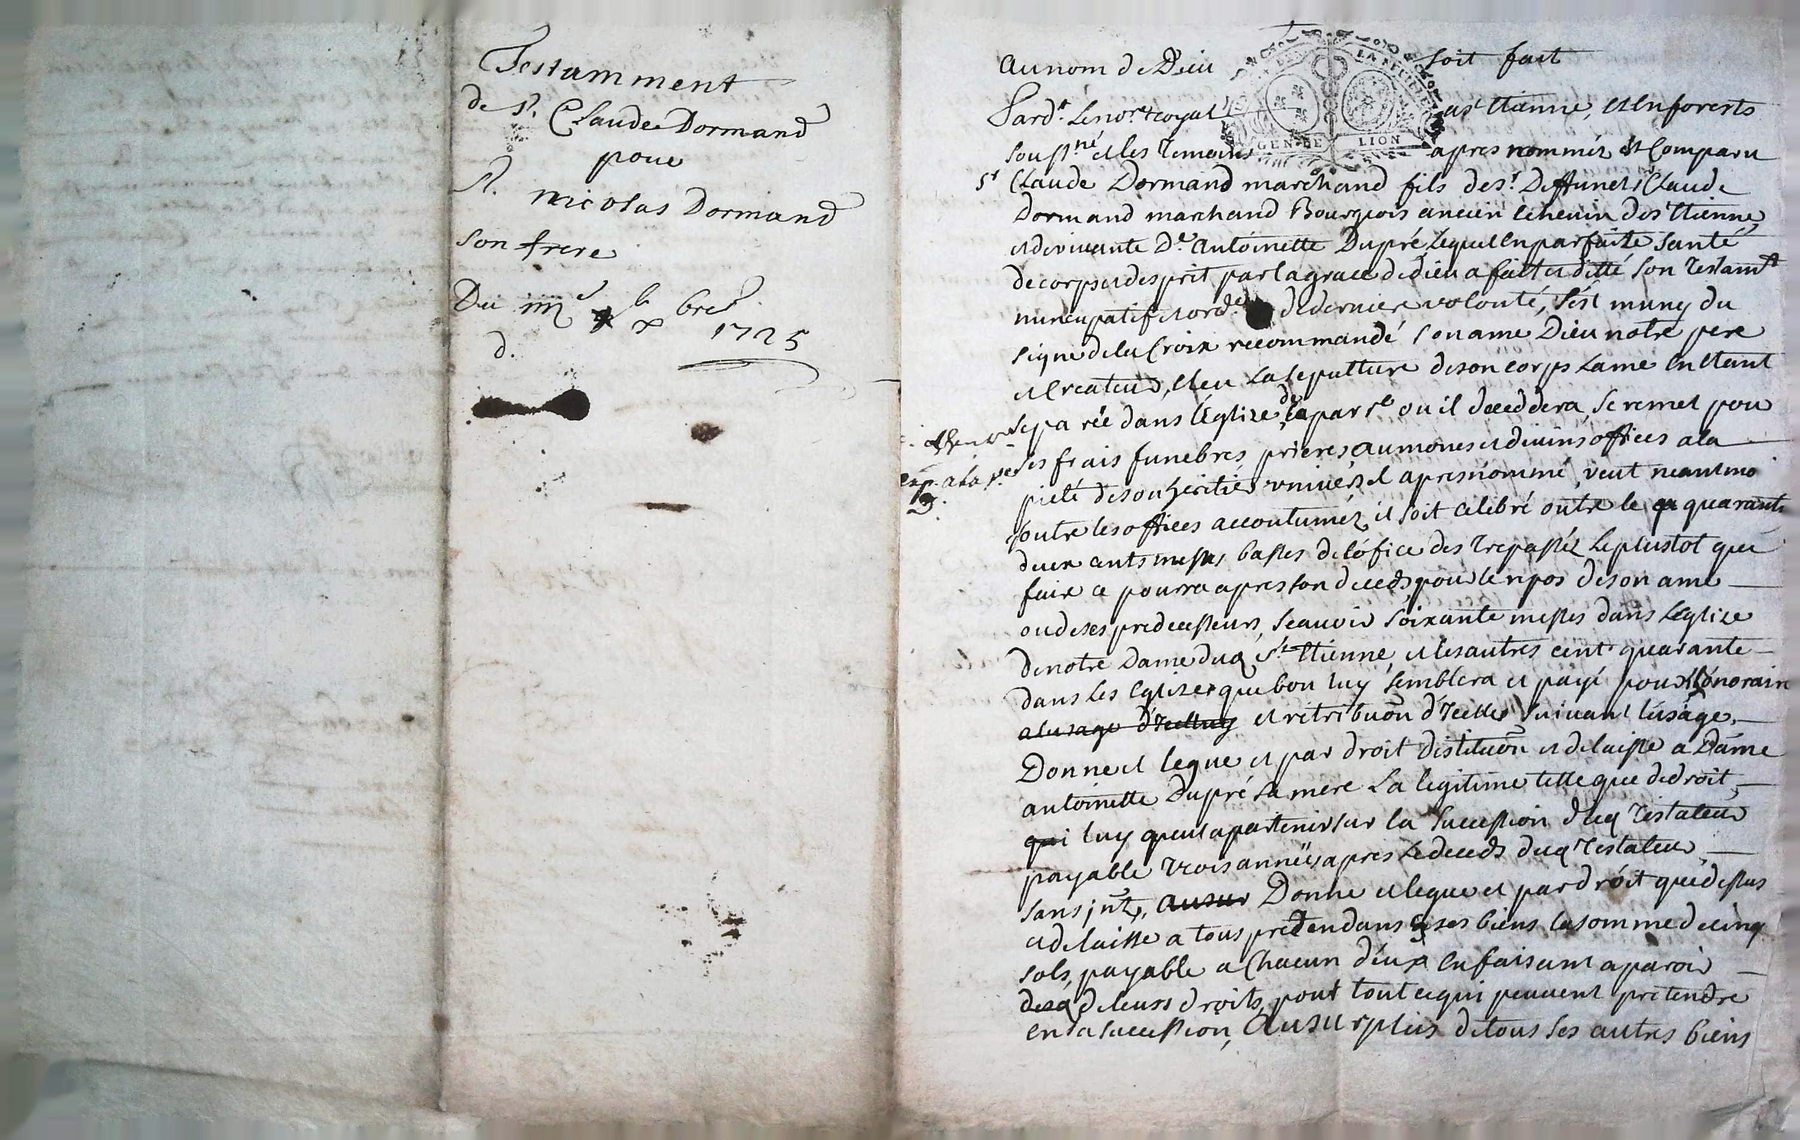 Testamment
de Sr. Claude Dormand
pour
Sr. nicolas Dormand
son frere
Du
bre
1725
d.
au nom de Dieu soit fait
Pard.t Le no.re royal a St Etienne, et en forests
soussi.né et les temoins apres nommés est Comparu
Sr Claude Dormand marchand fils de Sr. Deffunct Claude
Dormand marchand Bourgeois ancien echevin de St Etienne,
et de vivante D.e antoinette Dupré Lequel en parfaite santé
de corps et desprit par la grace de dieu a fait et ditté son testam.t
nuncupatif et ord. de derniere volonté, s'est muny du
signe de la Croix recommandé son ame Dieu notre pere
et Createur, eleu La sepulture de son corps Lame en etant
separée dans l'Eglize de la par.se ou il deceddera, se remet pour
ses frais funebres prieres aumones et divins offices a la
pieté de son heritier univérsel apres nommé, veut neantmo
outre les offices accoutumez, il soit celebré outre le quarante
deux cents messes basses de lófice des trepassez Le plustot que
faire ce pourra apres son deceds pour le repos de son ame
ou de ses predecesseurs, sçauoir soixante messes dans Leglize
de notre Dame dud. St Etienne, et les autres cent quarante
dans les Eglizes que bon luy semblera et payé pour l'honorair
a lusage d'Icelluy et retribuon d'Icelles suivant lusage.
Donne et legue et par droit distituon et delaisse a Dame
antoinette Dupré sa mere La legitime telle que de droit,
qui luy peut apartenir sur la succession dud. testateur
payable trois années apres Le deceds dud. testateur,
sans jnts, au sur Donne et legue et par droit que dessus
et delaisse a tous pretendans a ses biens la somme de cinq
sols, payable a Chacun d'eux en faisant aparoir
de leurs droits, pour tout ce qui peuvent pretendre
en sa succession, au surplus de tous ses autres biens